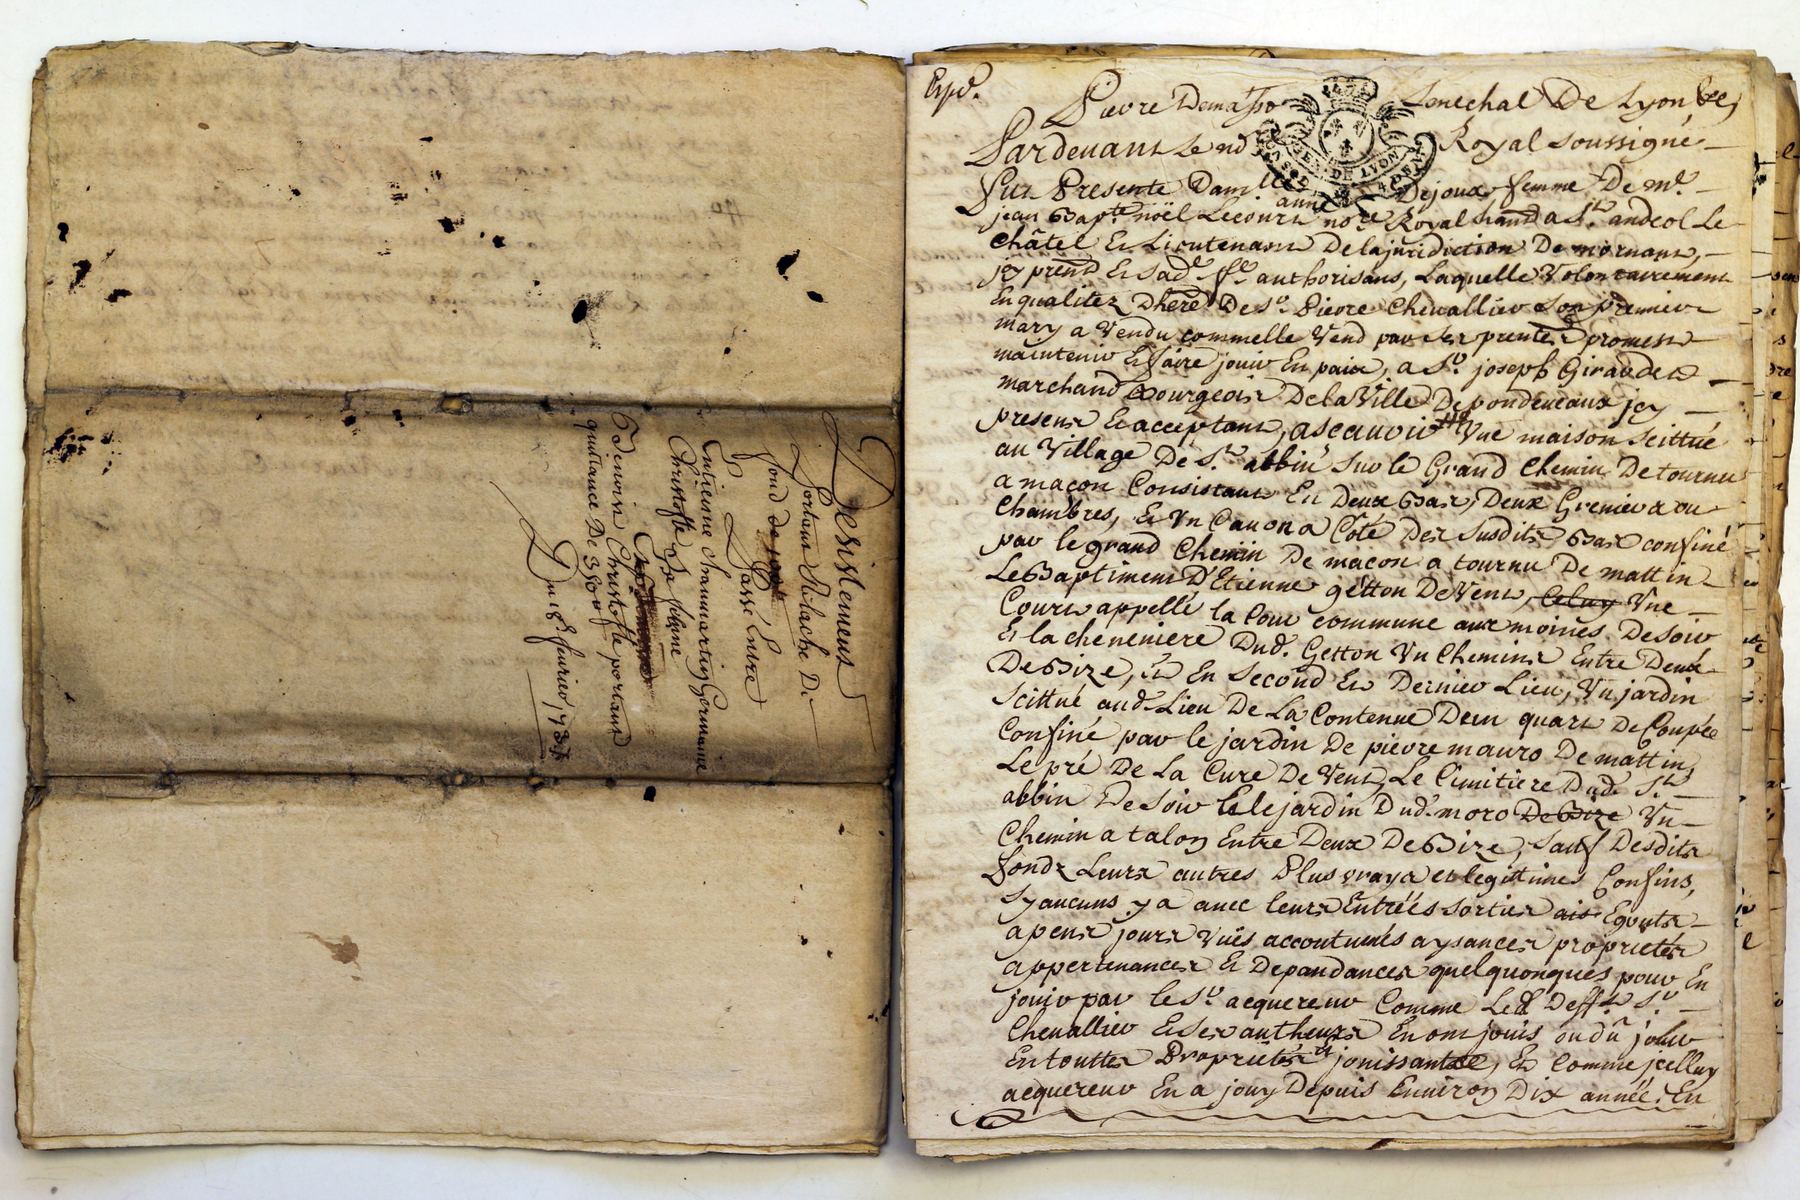 Desistement
Portant Relache De
fond
Passé Entre
Entienne chammartin Germaine
Christofle Sa feme
Benoin Christofle portant
quittance De 350
Du 18e feurier 173
Expd.
Pierre Dema Senechal De Lyon &c
Pardeuant Le Royal soussigné
fut Presente Dam Dejoux femme De me
jean Bapte noël Lecourt nore Royal a St andeol Le
Châtel Et Lieutenant Delajuridiction De mornant,
jcy prent Et Sad. fe authorisant, Laquelle Volontairement
En qualitez Dhered De Sr Pierre Cheuallier Son premier
mary a Vendu commelle Vend par Ses prentes promest
maintenir Et faire jouir En paix, a Sr joseph Giraudet
marchand Bourgeois De la Ville De pondeueaux jcy
present Et acceptant, ascauoir Vne maison Scittué
au Village De St abbin Sur le Grand Chemin De tournu
a macon Consistant En Deux Bas, Deux Grenier a ou
Chambres, Et Vn Cauon a Côté Des Susdits Bas confiné
par le grand Chemin De macon a tournu De mattin
Le Baptiment D'Etienne getton De Vent, Celuy Vne
Cours appellé la Cour commune aux moines De soir
Et la cheneuiere Dud. Getton Vn Chemin Entre Deux
De Bize, Et En Second Et Dernier Lieu, Vn jardin
Scittué aud. Lieu De La Contenue Dem quart De Coupée
Confiné par le jardin De pierre mauro De mattin,
Le pré De La Cure De Vent, Le Cimitiere Dud. St
abbin De Soir Le jardin Dud. moro De Bize Vn
Chemin a talon Entre Deux De Bize, Sauf Desdits
fonds Leurs autres Plus vrays et legittimes Confins,
Sy aucuns y a auec leurs Entréés sorties ais Egouts
apens jours Vûës accoutumés aysances proprietés
appertenances Et Dependances quelquonques pour En
jouir par le Sr acquereur Comme Led. Defft Sr
Cheuallier Et Ses autheurs En ont jouis ou dû jouir
En touttes Proprietés et jouissance, Et Comme jcelluy
acquereur En a jouy Depuis Enuiron Dix année. En